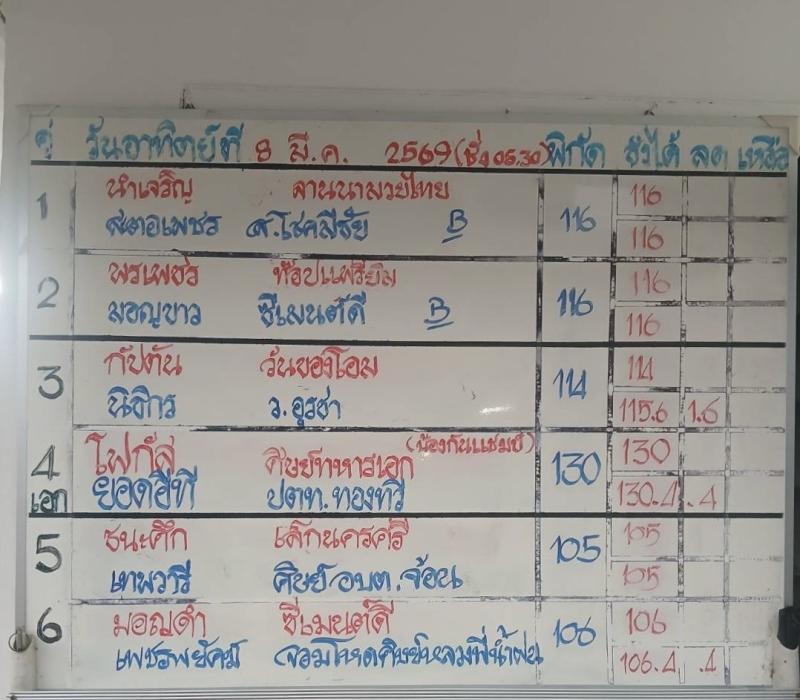 คู่ วันอาทิตย์ที่ 8 มี.ค. 2569 (ชั่ง 05.30) พิกัด ชั่งได้ ลด เหลือ
1 นำเจริญ ลานนามวยไทย 116
สตอเพชร ส.โชคมีชัย B 116 116
2 พรเพชร ท๊อปแฟรี่ยิม 116
มอญขาว ซีเมนต์ดี B 116 116
3 กัปตัน วันของโอม 114
นิธิกร ว.อุรชา 114 115.6 1.6
4 โฟกัส ศิษย์ทหารเอก (ป้องกันแชมป์) 130
เอก ยอดอีที ปตท.ทองทวี 130 130.4 .4
5 ธนะศึก เด็กนครศรี 105
เทพวารี ศิษย์อบต.จ้อน 105 105
6 มอญดำ ซีเมนต์ดี 106
เพชรพยัคฆ์ จอมโหดศิษย์หลวงพี่น้ำฝน 106 106.4 .4